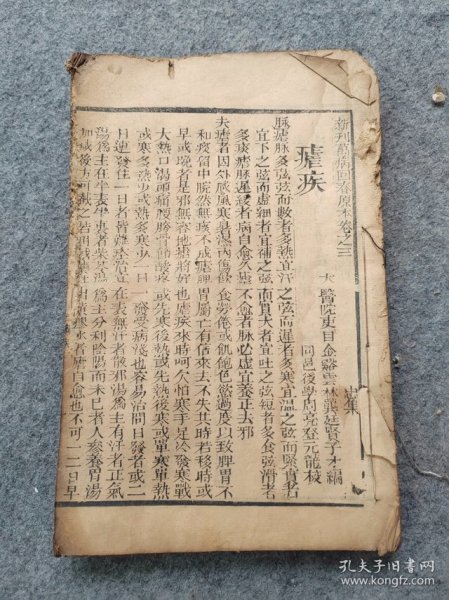 新刊萬病回春原本卷之三
太醫院吏目金谿雲林龔廷賢子才編
同邑後學周亮登元龍校
瘧疾
脉瘧脉多弦弦而數者多熱宜汗之弦而遲者多寒宜溫之弦而緊實者
宜下之弦而虛細者宜補之弦而實大者宜吐之弦短者多食弦滑者
多痰瘧脉遲緩者病自愈久瘧不愈者脉必虛宜養正去邪
夫瘧者因外感風寒暑濕內傷飲食勞倦或飢飽色慾過度以致脾胃不
和痰留中脘然無痰不成瘧脾胃屬土有信來去不失其時若移時或
早或晚者是邪無容地瘧將好也瘧疾來時呵欠怕寒手足冷發寒戰
大熱口渴頭痛腰胯骨節酸疼或先寒後熱或先熱後寒或單寒單熱
或寒多熱少或熱多寒少一日一發受病淺也容易治間日發者或二
日連發住一日者
在表無汗者散邪湯爲主有汗者正氣
湯爲主在半表半裏者柴苓湯爲主分利陰陽而未已者人參養胃湯
加減後方可截之若
自愈也不可一二日早
孔夫子旧书网
www.kongfz.com